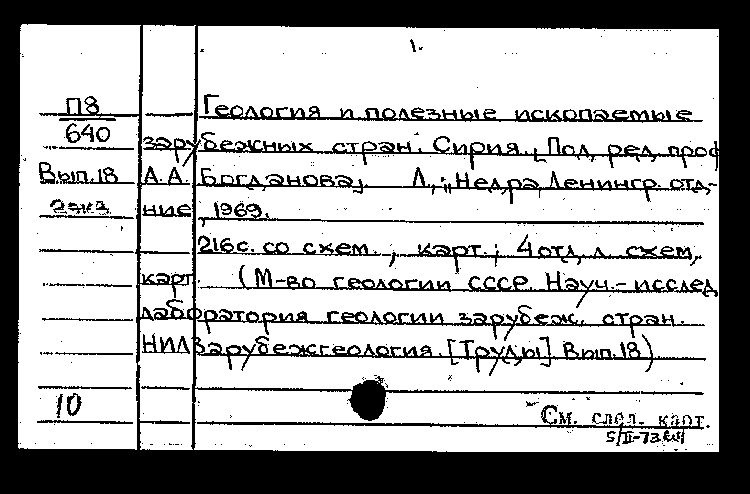 1.
П8 Геология и полезные ископаемые
640 зарубежных стран. Сирия. [Под ред. проф
Вып.18 А.А. Богданова]. Л., "Недра, Ленингр. отд-
2экз ние, 1969.
216с. со схем., карт.; 4 отд. л. схем,
карт. (М-во геологии СССР. Науч.-исслед
лаборатория геологии зарубеж. стран.
НИЛзарубежгеология. [Труды] Вып.18)
10
См. след. карт.
5/II-73